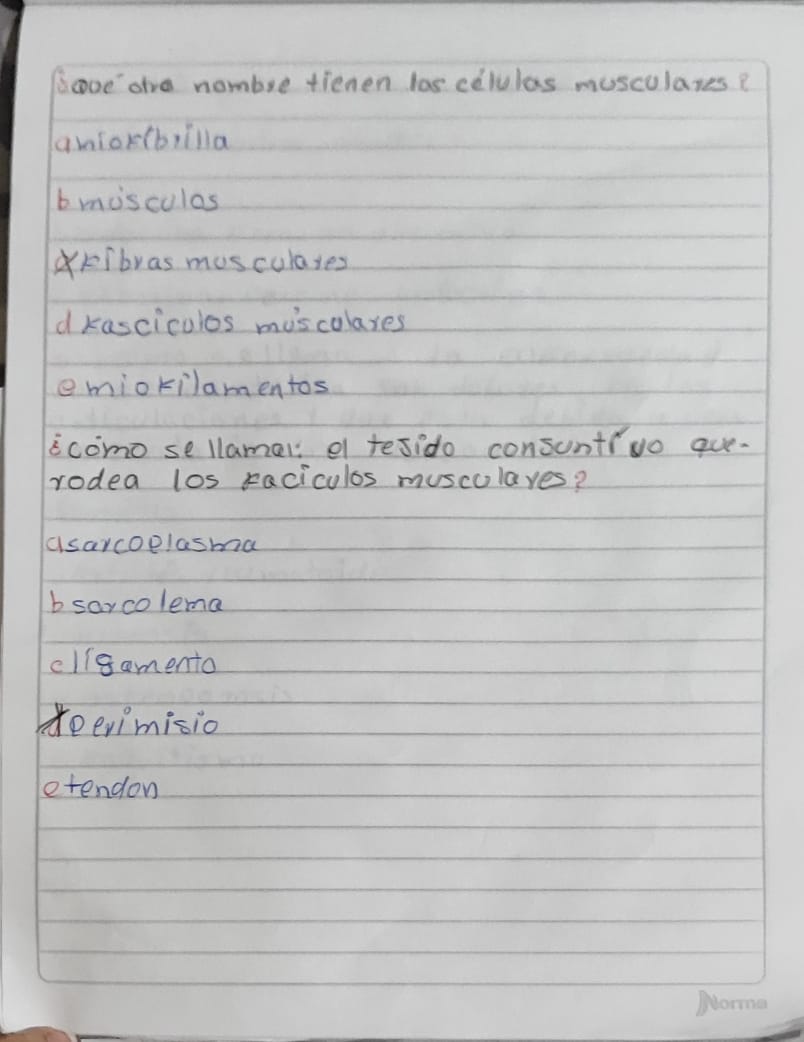 ¿que otro nombre tienen las células musculares?
a miofibrilla
b músculos
c fibras musculares
d fasciculos músculares
e miofilamentos
¿cómo se llama: el tejido consuntívo que-
rodea los faciculos musculares?
a sarcoplasma
b sarcolema
c lígamento
d perimisio
e tendon
Norma